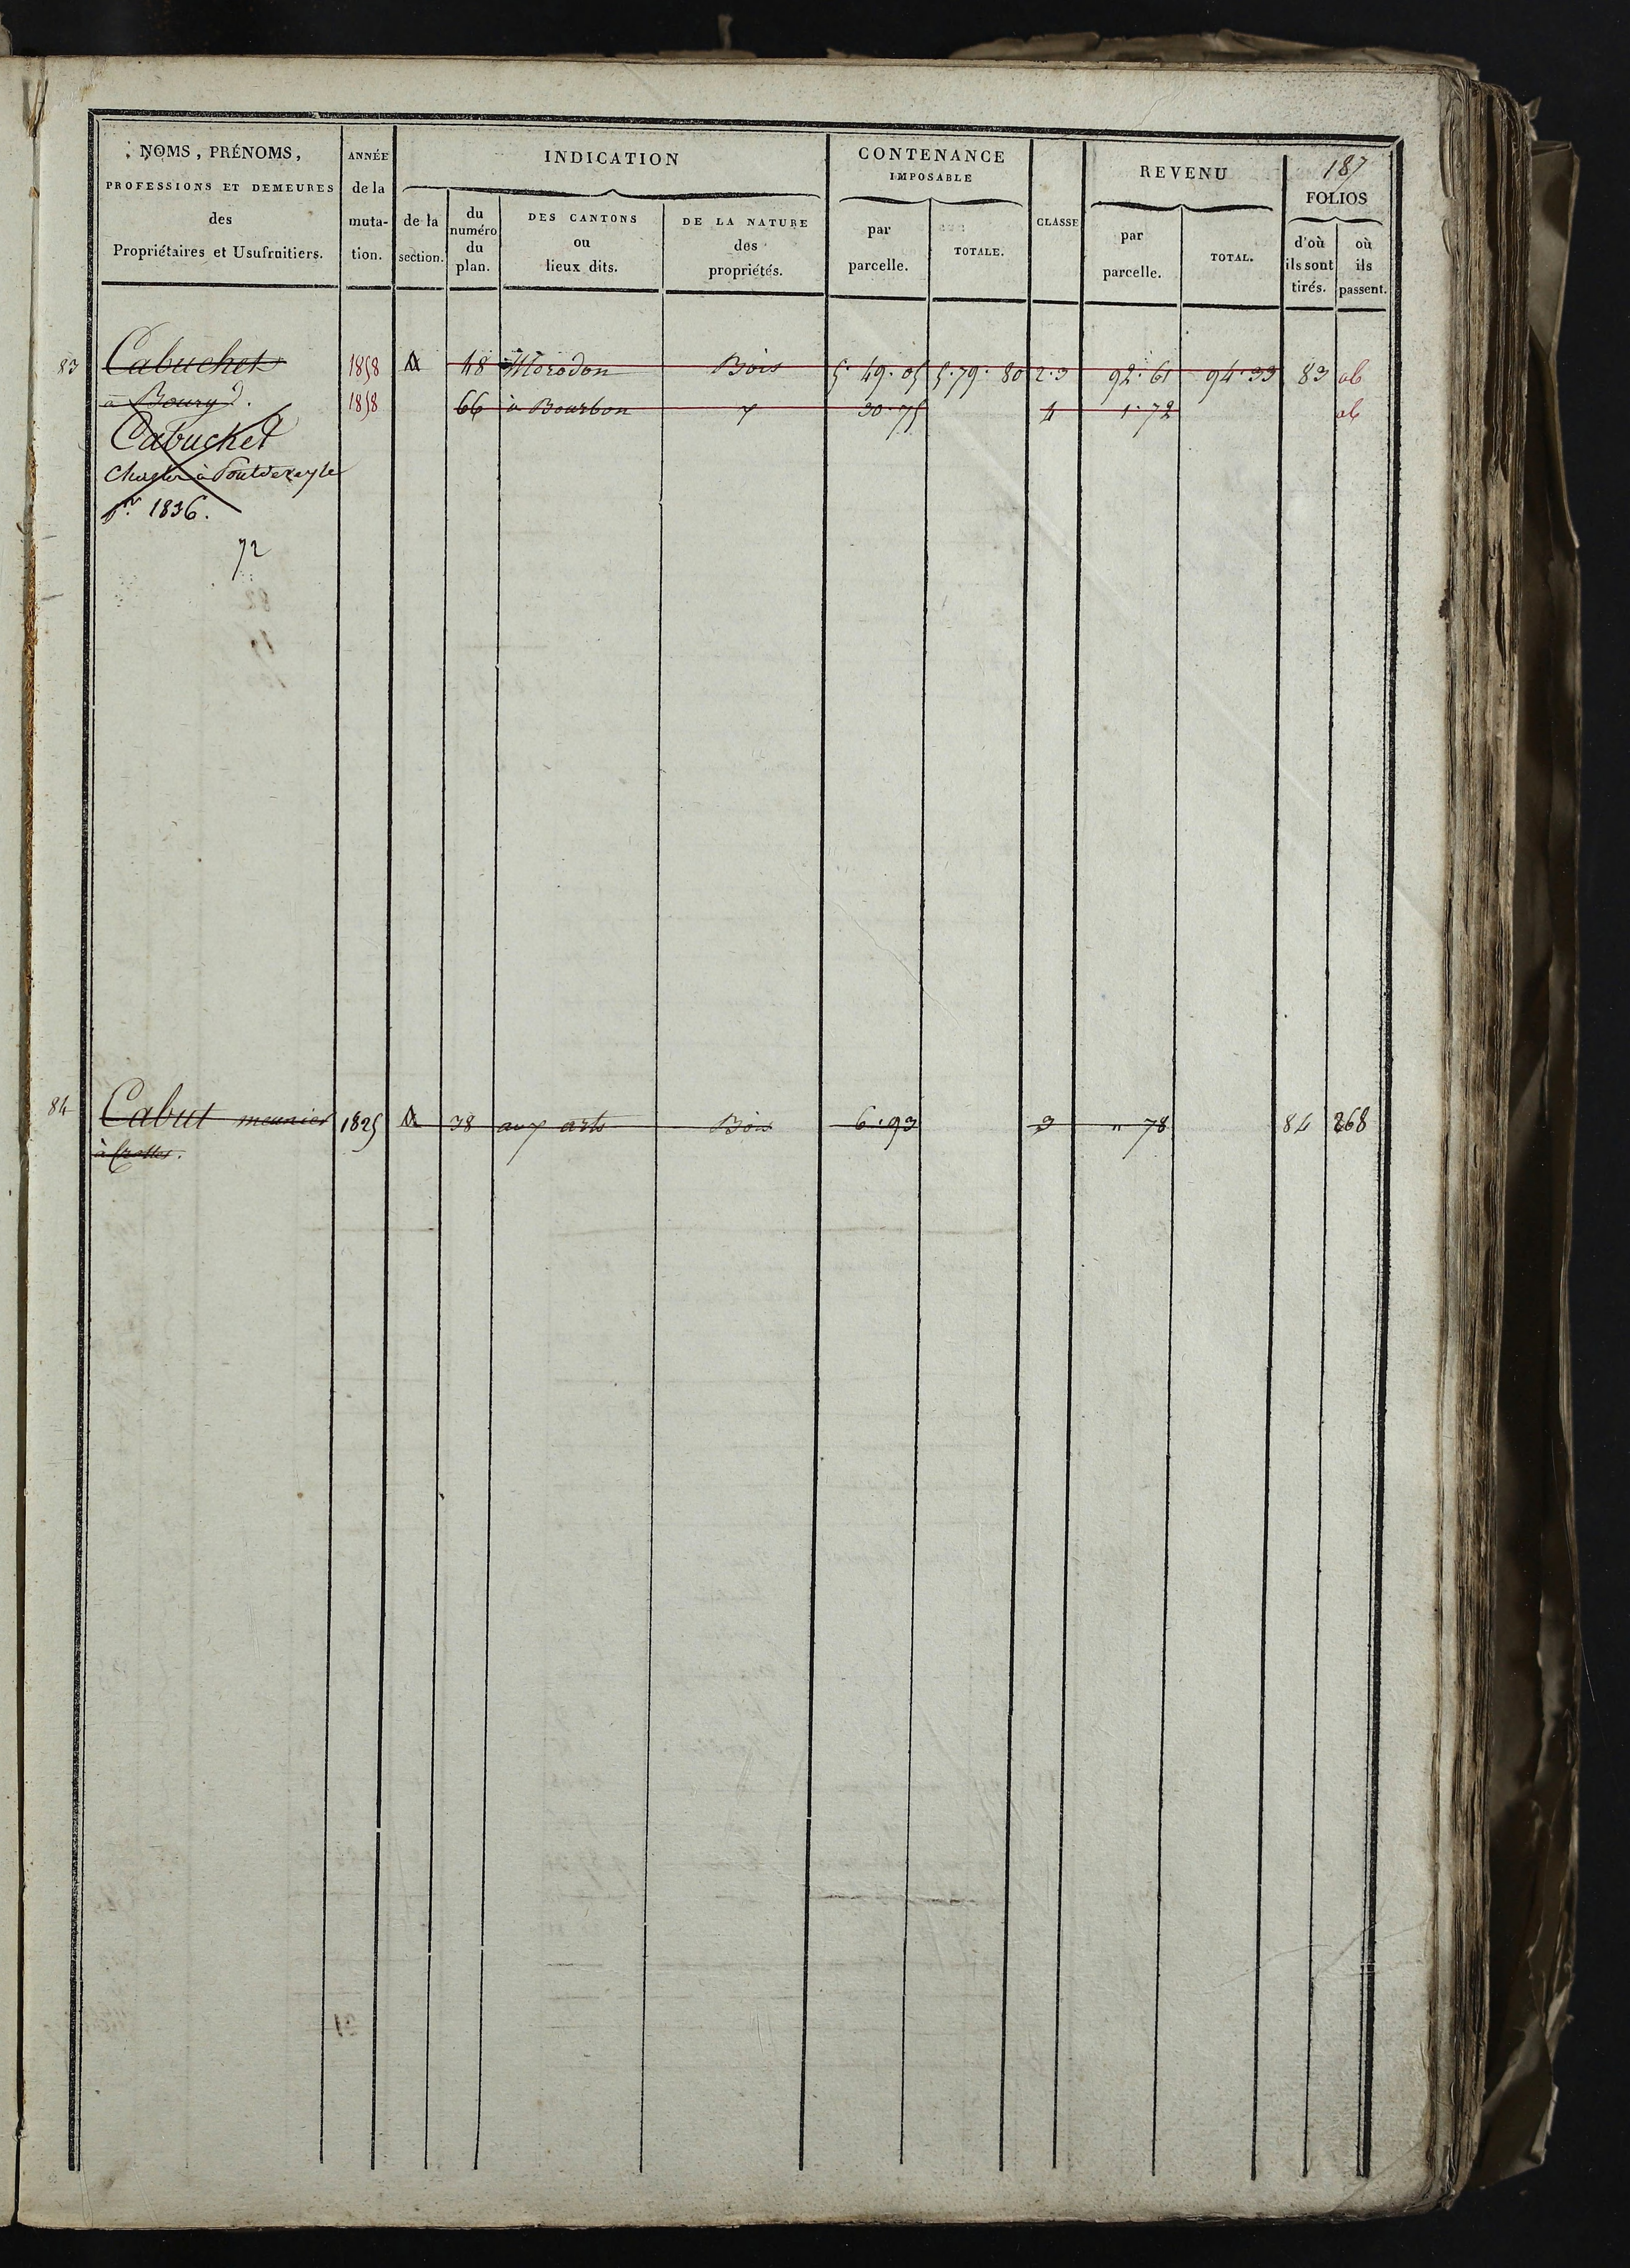 187
NOMS, PRÉNOMS,
PROFESSIONS ET DEMEURES
des
Propriétaires et Usufruitiers.
ANNÉE
de la
muta-
tion.
INDICATION
de la
section.
du
numéro
du
plan.
DES CANTONS
ou
lieux dits.
DE LA NATURE
des
propriétés.
CONTENANCE
IMPOSABLE
par
parcelle.
TOTALE.
CLASSE
REVENU
par
parcelle.
TOTAL.
FOLIOS
d'où
ils sont
tirés.
où
ils
passent.
83 Cabuchet 1858 A 48 Morodon Bois 5.49.05 5.79.80 2.3 92.61 94.33 83 ab
à Bourg 1858 66 à Bourbon 30.75 4 1.72 ab
Cabuchet
à Pontdevayle
pr. 1836.
72
84 Cabut meunier 1825 A 38 aux arts Bois 6.93 3 " 78 84 268
à Crottes.